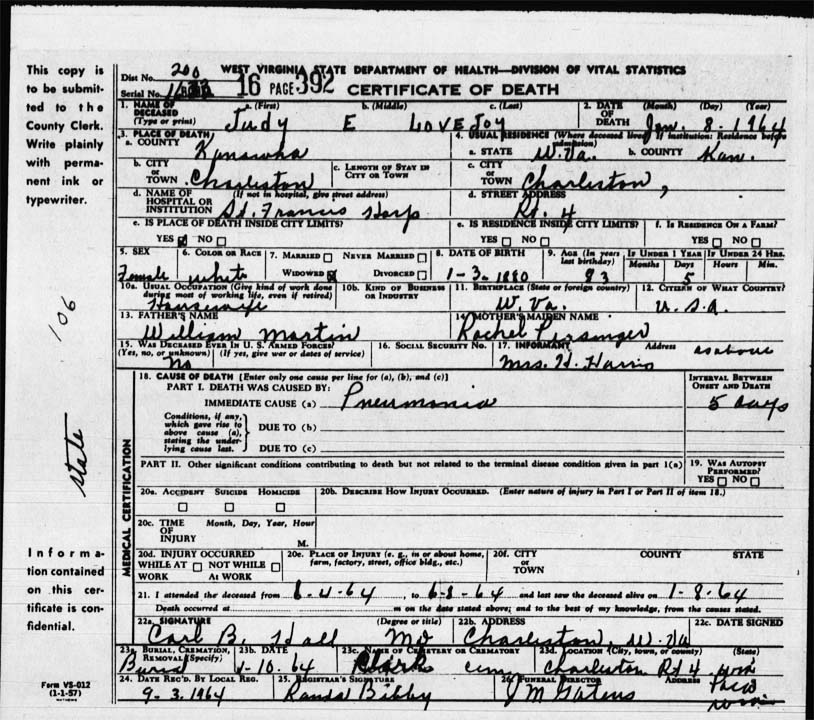 This copy is
to be submit-
ted to the
County Clerk.
Write plainly
with perma-
nent ink or
typewriter.
106
state
Informa-
tion contained
on this cer-
tificate is con-
fidential.
Form VS-012
(1-1-57)
WEST VIRGINIA STATE DEPARTMENT OF HEALTH—DIVISION OF VITAL STATISTICS
Dist No. 200
Serial No. 16 PAGE 392 CERTIFICATE OF DEATH
1. NAME OF DECEASED (Type or print) a. (First) b. (Middle) c. (Last) 2. DATE OF DEATH (Month) (Day) (Year)
Judy E LOVEJOY Jan. 8. 1964
3. PLACE OF DEATH 4. USUAL RESIDENCE (Where deceased lived. If institution: Residence before admission)
a. COUNTY Kanawha a. STATE W. Va. b. COUNTY Kan.
b. CITY or TOWN Charleston c. LENGTH OF STAY IN CITY OR TOWN c. CITY or TOWN Charleston,
d. NAME OF HOSPITAL OR INSTITUTION (If not in hospital, give street address) St. Francis Hosp d. STREET ADDRESS Rt. 4
e. IS PLACE OF DEATH INSIDE CITY LIMITS? YES NO e. IS RESIDENCE INSIDE CITY LIMITS? YES NO f. IS RESIDENCE ON A FARM? YES NO
5. SEX 6. COLOR OR RACE 7. MARRIED NEVER MARRIED WIDOWED DIVORCED 8. DATE OF BIRTH 9. AGE (In years last birthday) IF UNDER 1 YEAR Months Days IF UNDER 24 HRS. Hours Min.
Female white 1-3-1880 83 5
10a. USUAL OCCUPATION (Give kind of work done during most of working life, even if retired) 10b. KIND OF BUSINESS OR INDUSTRY 11. BIRTHPLACE (State or foreign country) 12. CITIZEN OF WHAT COUNTRY?
Housewife W. Va. U.S.A.
13. FATHER'S NAME 14. MOTHER'S MAIDEN NAME
William Martin Rachel
15. WAS DECEASED EVER IN U. S. ARMED FORCES? (Yes, no, or unknown) (If yes, give war or dates of service) 16. SOCIAL SECURITY NO. 17. INFORMANT Address
No Mrs. H. Harris as above
MEDICAL CERTIFICATION
18. CAUSE OF DEATH [Enter only one cause per line for (a), (b), and (c)] INTERVAL BETWEEN ONSET AND DEATH
PART I. DEATH WAS CAUSED BY:
IMMEDIATE CAUSE (a) Pneumonia 5 days
Conditions, if any, which gave rise to above cause (a), stating the underlying cause last.
DUE TO (b)
DUE TO (c)
PART II. Other significant conditions contributing to death but not related to the terminal disease condition given in part 1(a) 19. WAS AUTOPSY PERFORMED? YES NO
20a. ACCIDENT SUICIDE HOMICIDE 20b. DESCRIBE HOW INJURY OCCURRED. (Enter nature of injury in Part I or Part II of item 18.)
20c. TIME OF INJURY Month, Day, Year, Hour M.
20d. INJURY OCCURRED WHILE AT WORK NOT WHILE AT WORK 20e. PLACE OF INJURY (e. g., in or about home, farm, factory, street, office bldg., etc.) 20f. CITY or TOWN COUNTY STATE
21. I attended the deceased from 1-4-64, to 1-8-64 and last saw the deceased alive on 1-8-64
Death occurred at m on the date stated above; and to the best of my knowledge, from the causes stated.
22a. SIGNATURE (Degree or title) 22b. ADDRESS 22c. DATE SIGNED
Carl B. Hall MD Charleston, W. Va
23a. BURIAL, CREMATION, REMOVAL (Specify) 23b. DATE 23c. NAME OF CEMETERY OR CREMATORY 23d. LOCATION (City, town, or county) (State)
Burial 1-10-64 Clark cem Charleston Rt 4
24. DATE REC'D. BY LOCAL REG. 25. REGISTRAR'S SIGNATURE 26. FUNERAL DIRECTOR ADDRESS
9-3-1964 J M Gatens